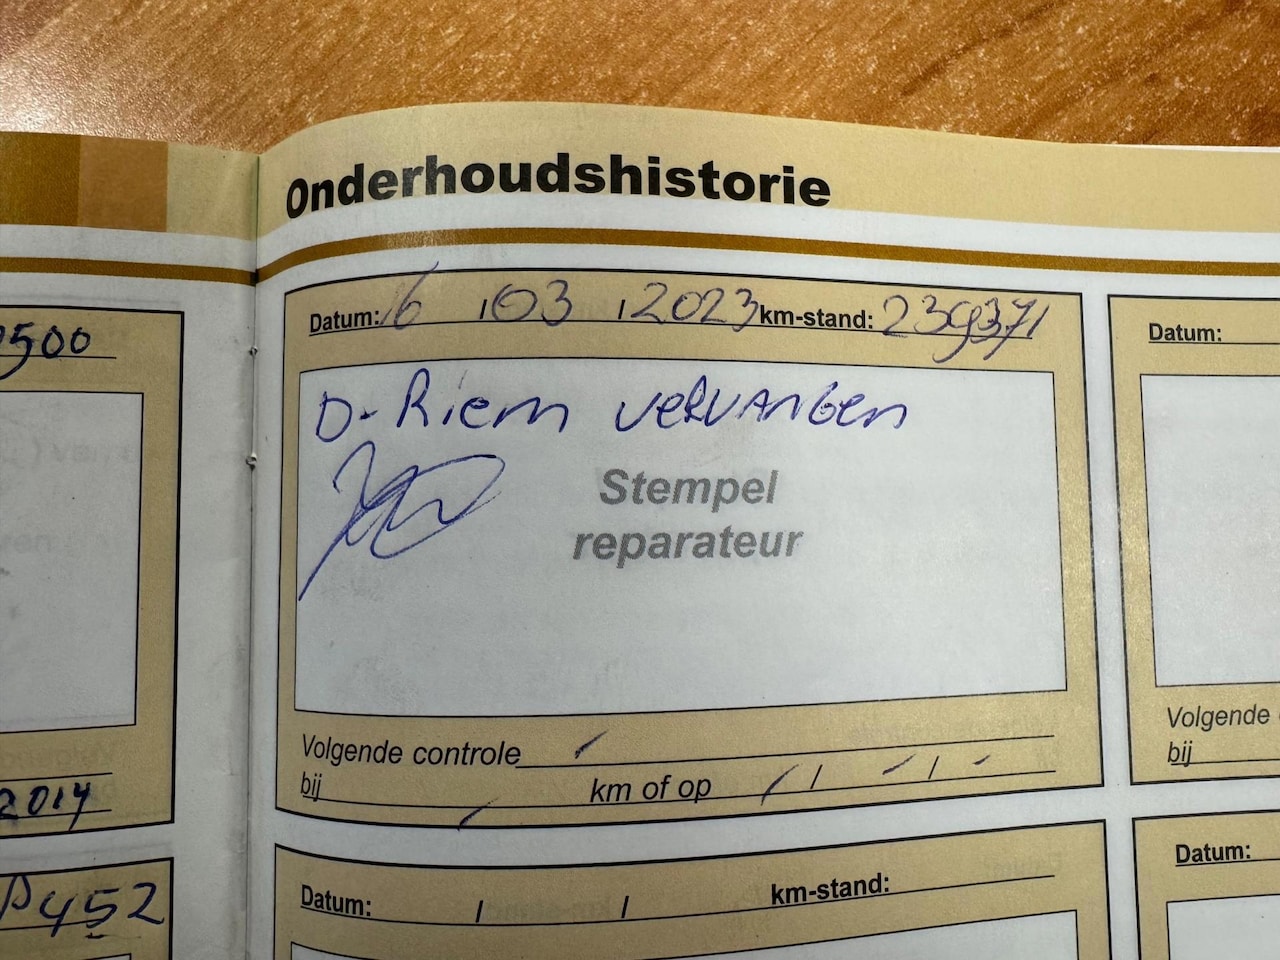 Onderhoudshistorie
500
2014
P452
Datum: 16 / 03 / 2023 km-stand: 239371
D-Riem vervangen
Stempel
reparateur
Volgende controle
bij km of op / /
Datum: / / km-stand:
Datum:
Volgende
bij
Datum: